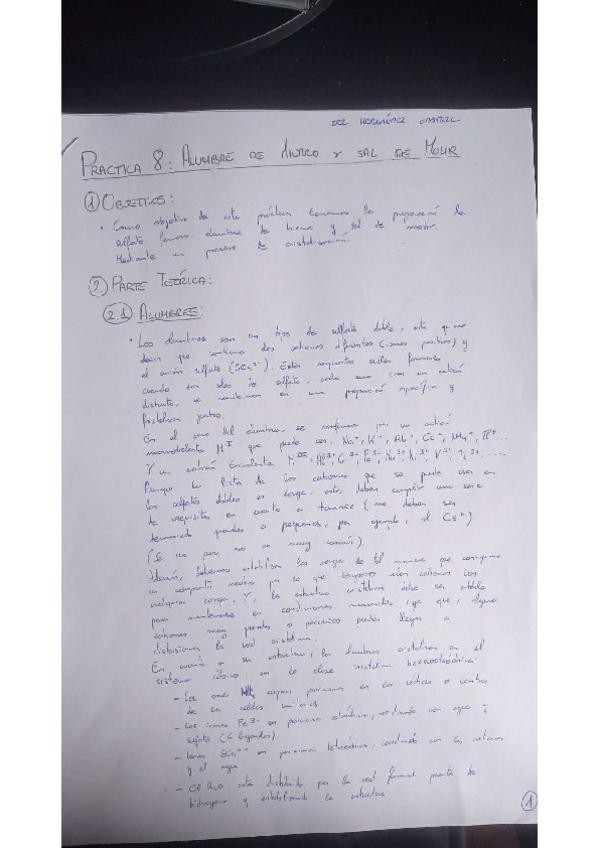 PRACTICA 8: ALUMBRE DE HIERRO Y SAL DE MOHR
① OBJETIVOS:
• Como objetivo de esta práctica tenemos la preparación de
sulfato ferroso alumbre de hierro y sal de mohr.
Mediante un proceso de cristalización.
② PARTE TEÓRICA:
2.1 ALUMBRES:
• Los alumbres son un tipo de sulfato doble, esto quiere
decir que contiene dos cationes diferentes (iones positivos) y
el anión sulfato (SO₄²⁻). Estos compuestos suelen formarse
cuando dos sales de sulfato, cada una con un catión
distinto, se combinan en una proporción específica y
cristalizan juntos.
En el caso del alumbre, se conforma por un catión
monovalente Mᴵ que puede ser: Na⁺, K⁺, Rb⁺, Cs⁺, NH₄⁺,
Y un catión trivalente
Aunque la lista de los cationes que se puede usar en
los sulfatos dobles es larga, estos deben cumplir una serie
de requisitos en cuanto a tamaño (no deben ser
demasiado grandes o pequeños, por ejemplo, el Cs⁺)
muy común).
Además, deben estabilizar las cargas de tal manera que
un compuesto neutro por lo que cationes con
cualquier carga. Y, la estructura cristalina debe ser estable
para mantenerse en condiciones normales, ya que, algunos
cationes muy grandes o pequeños pueden llegar a
distorsionar la red cristalina.
En cuanto a su estructura, los alumbres cristalizan en el
sistema cúbico en la clase cristalina
- Los iones NH₄ ocupan posiciones en los vértices o centros
de las celdas unitarias
- Los iones Fe³⁺ en posiciones octaédricas, coordinando con agua y
sulfato (6 ligandos)
- Iones SO₄²⁻ en posiciones tetraédricas, coordinando con los cationes
y el agua
- El H₂O está distribuido por la red formando puentes de
hidrógeno y estabilizando la estructura
①